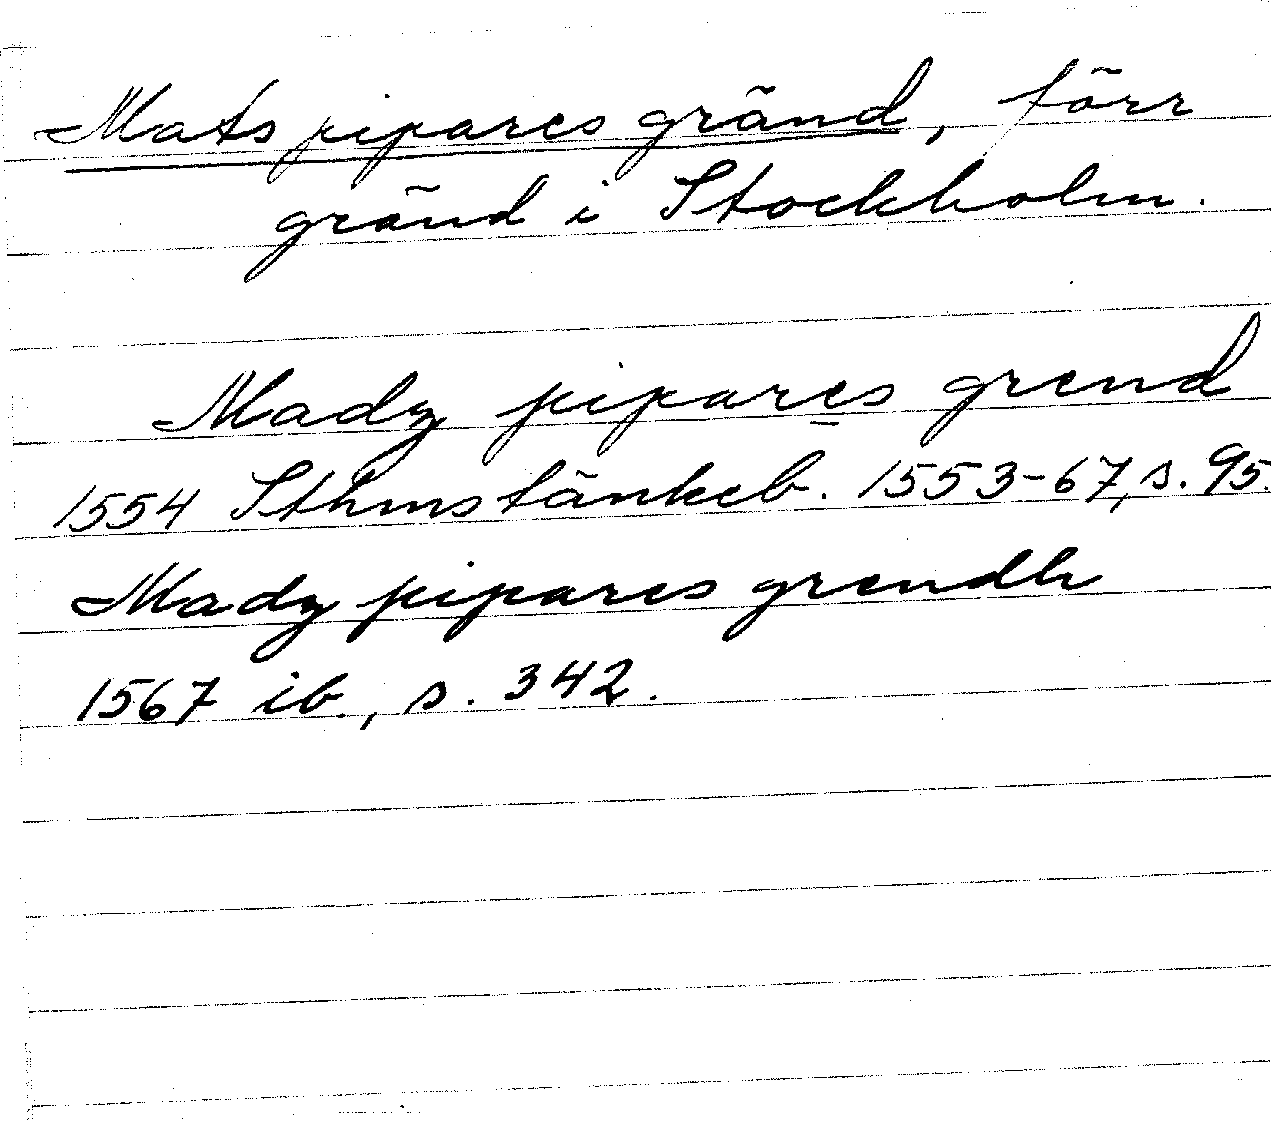 Mats pipares gränd, förr
gränd i Stockholm.
Madz pipares grend
1554 Sthms tänkeb. 1553-67, s. 95.
Madz pipares grendh
1567 ib., s. 342.